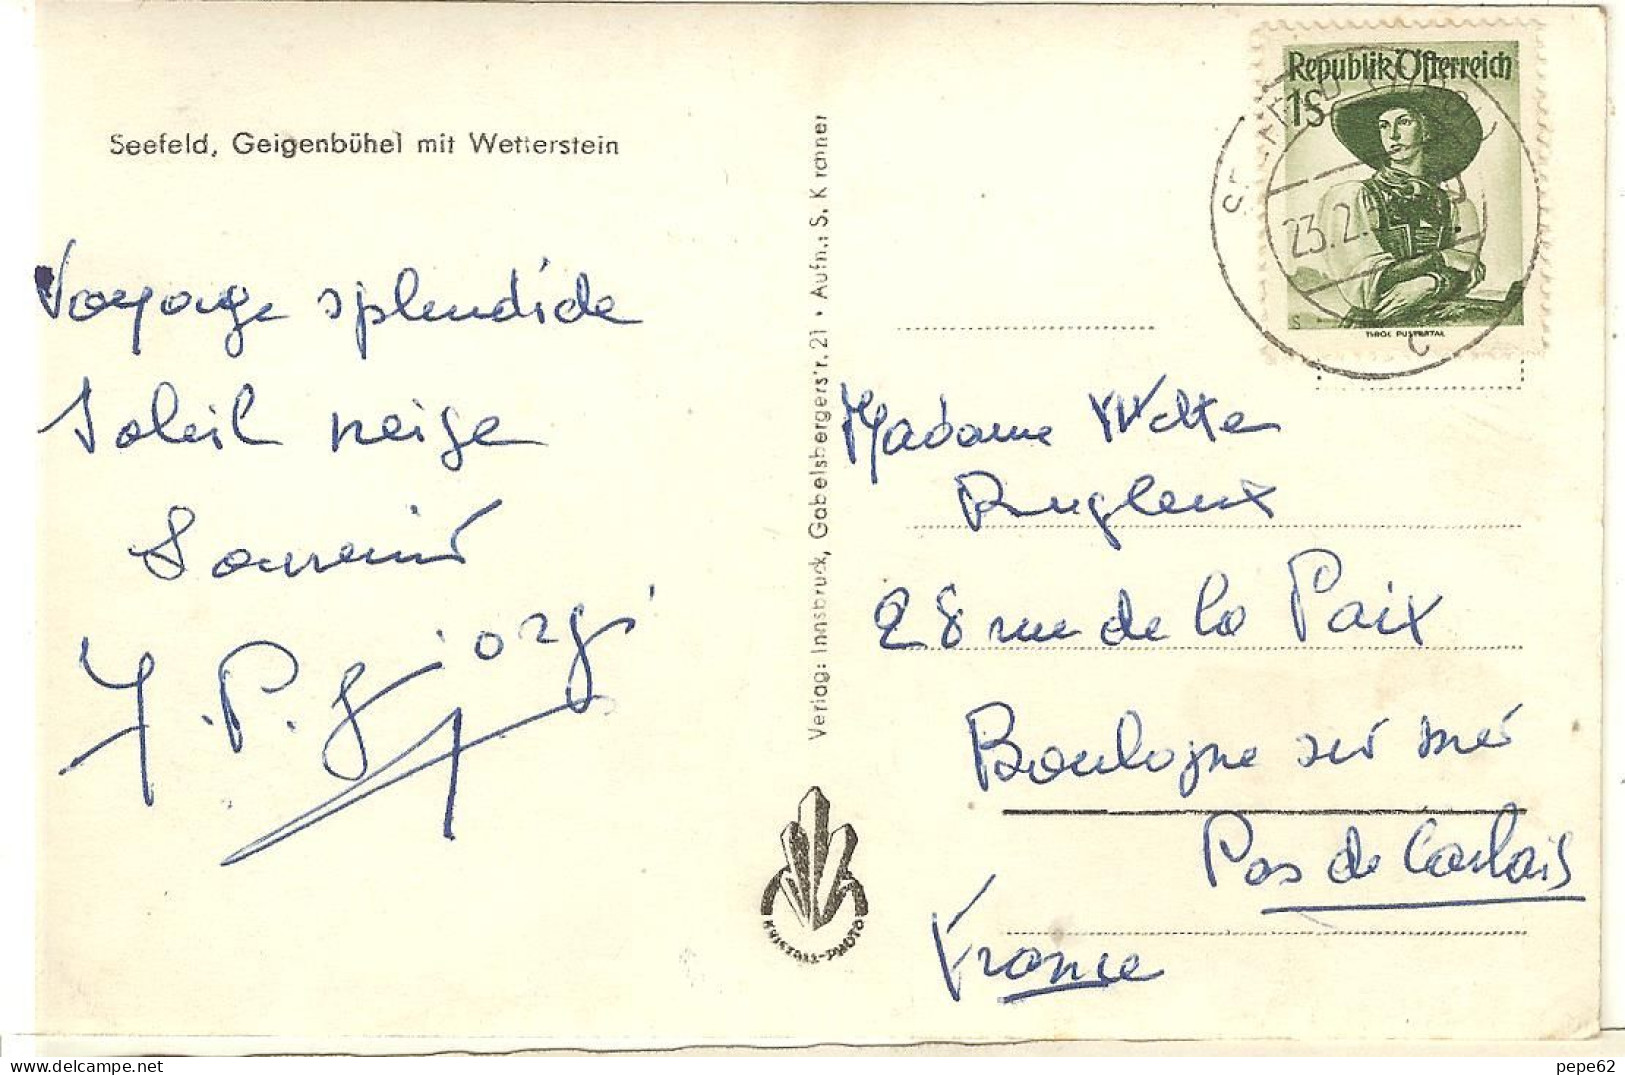 Seefeld, Geigenbühel mit Wetterstein
Voyage splendide
Soleil neige
Souvenir
Y.P. Giorgi
Verlag: Innsbruck, Gabelsbergerstr. 21 • Aufn.: S. Kraner
KRISTALL-PHOTO
Republik Österreich
1S
TIROL PUSTERTAL
SEEFELD TIROL
23.2.
Madame
28 rue de la Paix
Boulogne sur mer
Pas de Calais
France
delcampe.net
pepe62